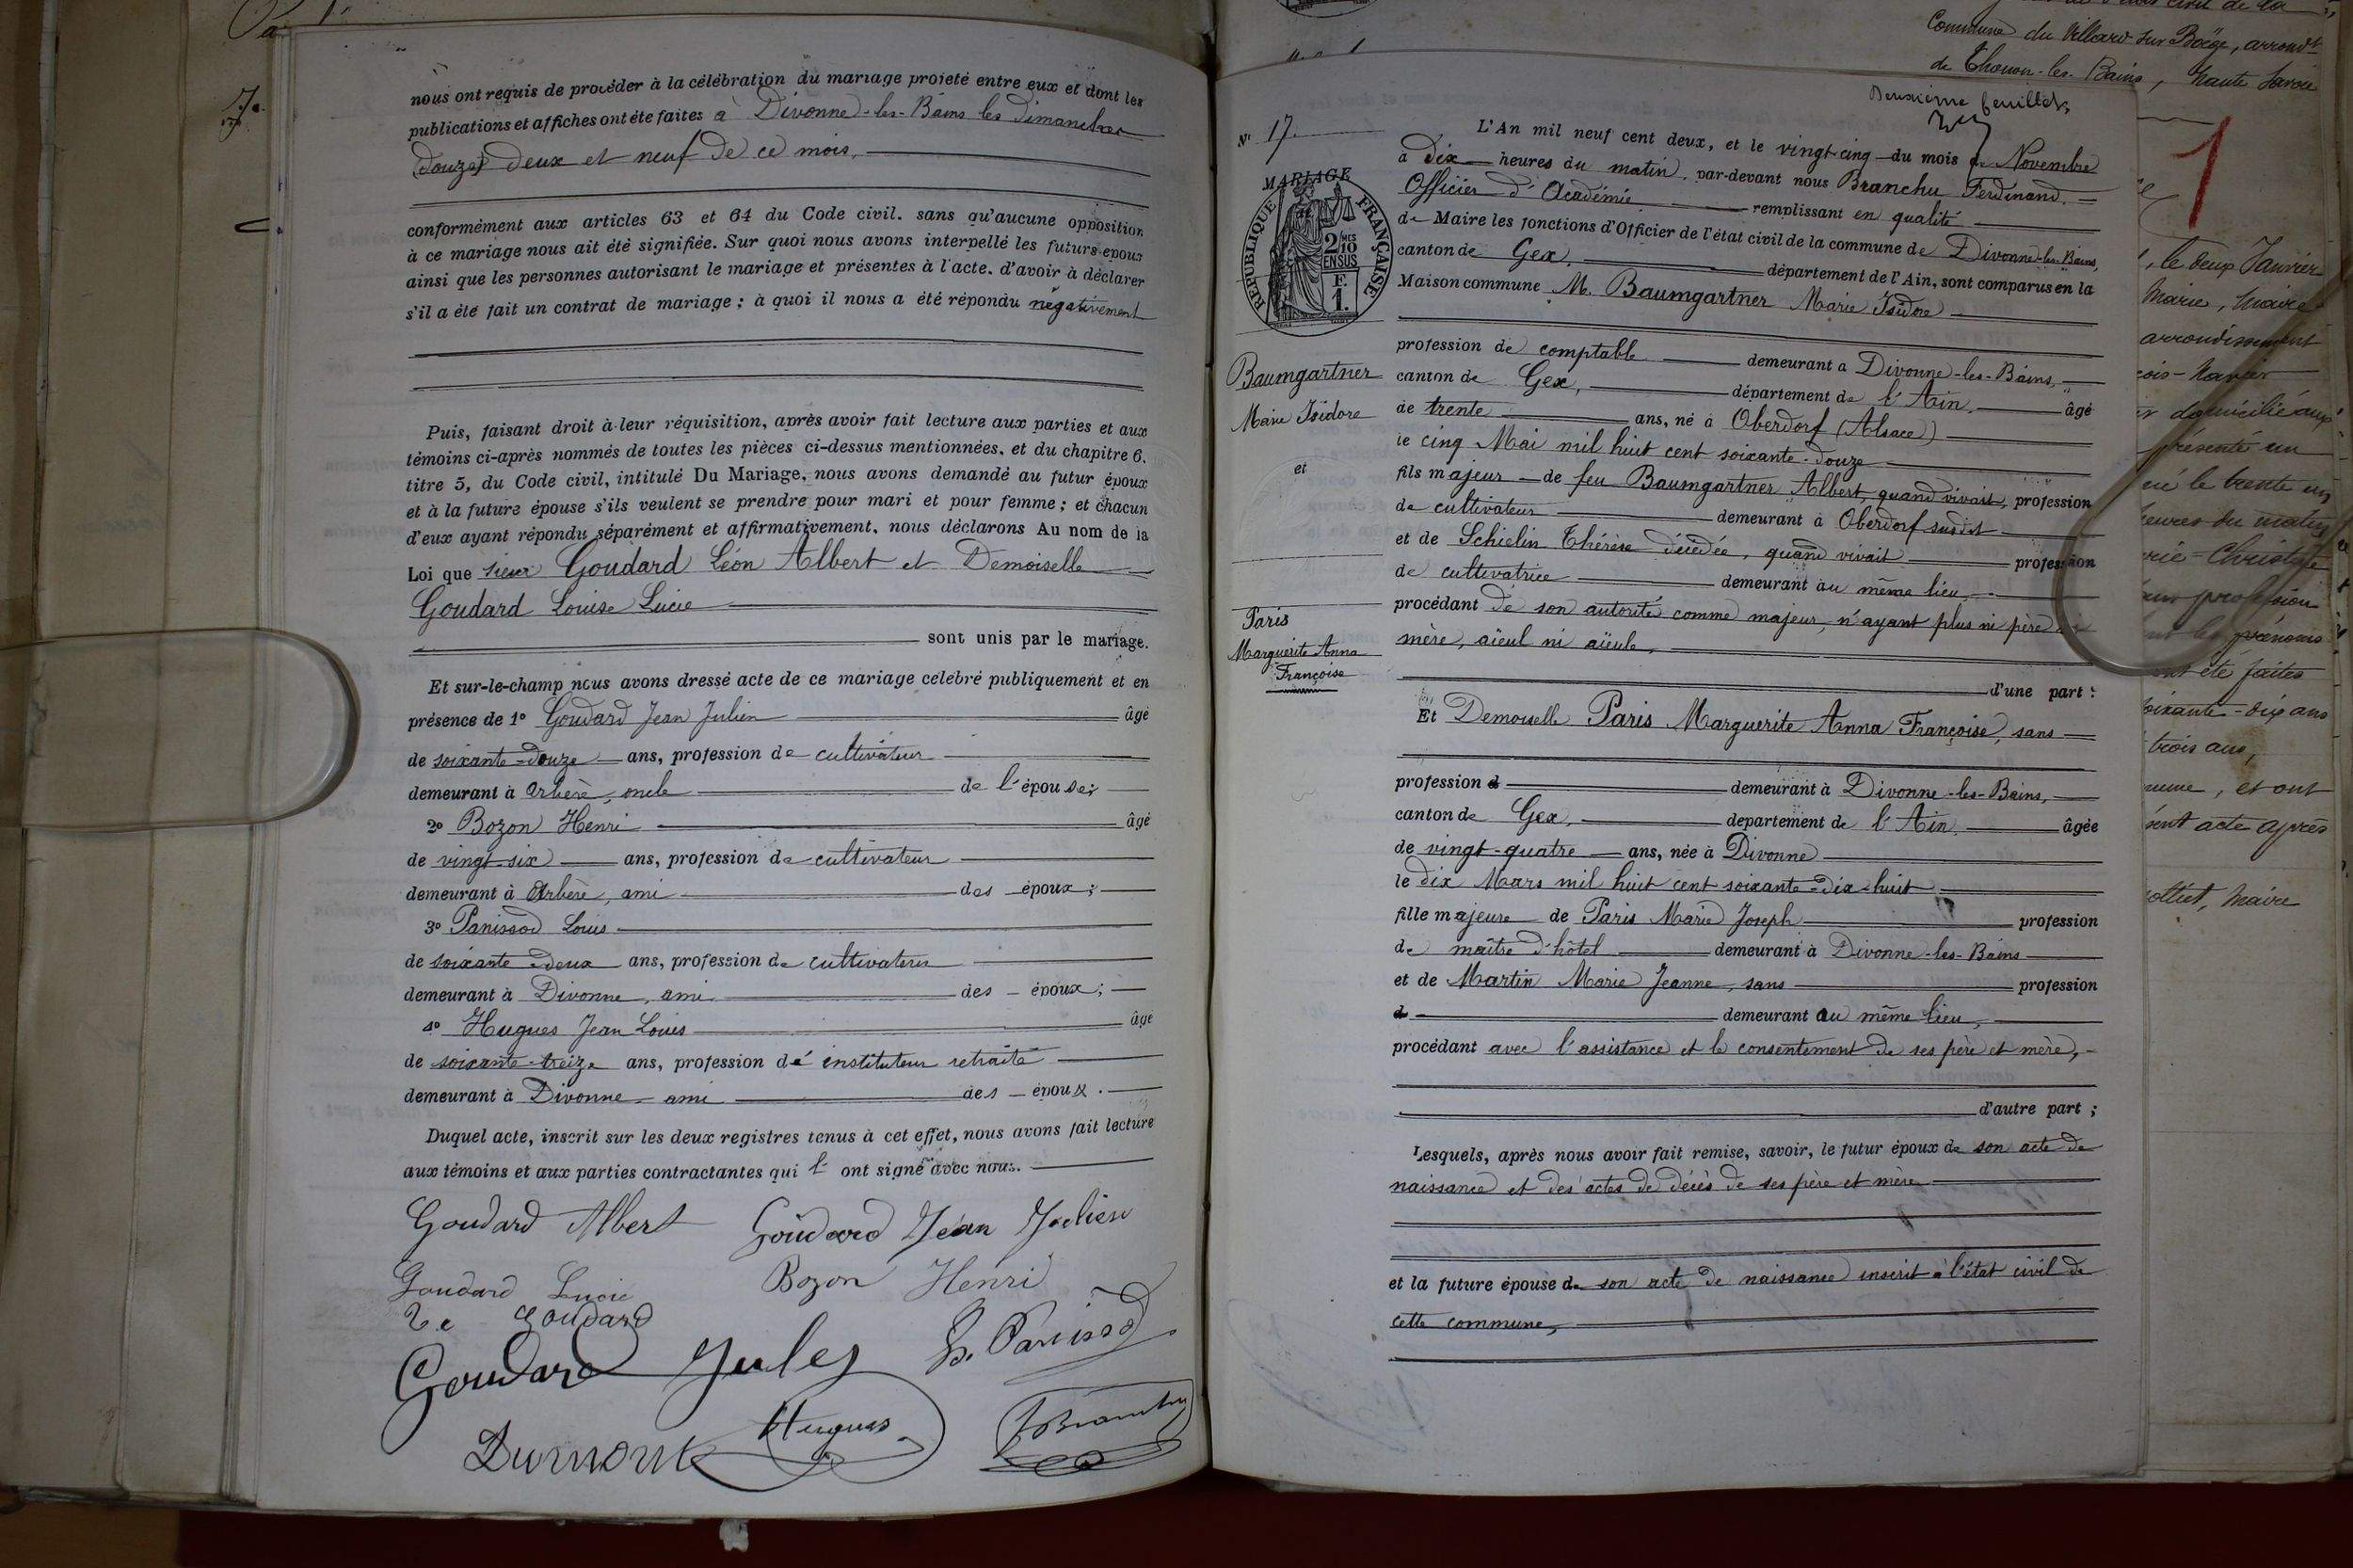 nous ont requis de procéder à la célébration du mariage projeté entre eux et dont les
publications et affiches ont été faites à Divonne-les-Bains les dimanches
(douze) deux et neuf de ce mois,
conformément aux articles 63 et 64 du Code civil. sans qu'aucune opposition
à ce mariage nous ait été signifiée. Sur quoi nous avons interpellé les futurs epoux
ainsi que les personnes autorisant le mariage et présentes à l'acte. d'avoir à déclarer
s'il a été fait un contrat de mariage ; à quoi il nous a été répondu négativement
Puis, faisant droit à leur réquisition, après avoir fait lecture aux parties et aux
témoins ci-après nommés de toutes les pièces ci-dessus mentionnées, et du chapitre 6.
titre 5, du Code civil, intitulé Du Mariage, nous avons demandé au futur époux
et à la future épouse s'ils veulent se prendre pour mari et pour femme ; et chacun
d'eux ayant répondu séparément et affirmativement, nous déclarons Au nom de la
Loi que sieur Goudard Léon Albert et Demoiselle
Goudard Louise Lucie
sont unis par le mariage.
Et sur-le-champ nous avons dressé acte de ce mariage célébré publiquement et en
présence de 1° Goudard Jean Julien âgé
de soixante-douze ans, profession de cultivateur
demeurant à Arbère, oncle de l'épouse;
2° Bozon Henri âgé
de vingt-six ans, profession de cultivateur
demeurant à Arbère, ami des époux;
3° Panissod Louis
de soixante-deux ans, profession de cultivateur
demeurant à Divonne, ami des époux;
4° Hugues Jean Louis âgé
de soixante-treize ans, profession d'instituteur retraité
demeurant à Divonne ami des époux.
Duquel acte, inscrit sur les deux registres tenus à cet effet, nous avons fait lecture
aux témoins et aux parties contractantes qui l' ont signé avec nous.
Goudard Albert Goudard Jean Julien
Goudard Lucie Bozon Henri
Ve Goudard
Goudard Jules L. Panissod
Dumont Hugues FBranchu
Commune du Villard-sur-Boëge, arrondt
de Thonon-les-Bains, haute Savoie
Deuxième feuillet
N° 17.
L'An mil neuf cent deux, et le vingt-cinq du mois de Novembre
à dix heures du matin, par-devant nous Branchu Ferdinand.
Officier d'Académie remplissant en qualité
de Maire les fonctions d'Officier de l'état civil de la commune de Divonne-les-Bains,
canton de Gex, département de l'Ain, sont comparus en la
Maison commune M. Baumgartner Marie Isidore
MARIAGE
REPUBLIQUE FRANÇAISE
2/10 MES
EN SUS
F.
1.
Baumgartner
Marie Isidore
et
Paris
Marguerite Anna
Françoise
profession de comptable demeurant à Divonne-les-Bains,
canton de Gex, département de l'Ain, âgé
de trente ans, né à Oberdorf (Alsace)
le cinq Mai mil huit cent soixante-douze
fils majeur de feu Baumgartner Albert, quand vivait, profession
de cultivateur demeurant à Oberdorf susdit
et de Schielin Thérèse décédée, quand vivait profession
de cultivatrice demeurant au même lieu,
procédant de son autorité comme majeur, n'ayant plus ni père ni
mère, aïeul ni aïeule,
d'une part :
Et Demoiselle Paris Marguerite Anna Françoise, sans
profession d demeurant à Divonne-les-Bains,
canton de Gex, departement de l'Ain, âgée
de vingt-quatre ans, née à Divonne
le dix Mars mil huit cent soixante-dix-huit
fille majeure de Paris Marie Joseph profession
de maître d'hôtel demeurant à Divonne-les-Bains
et de Martin Marie Jeanne, sans profession
d demeurant au même lieu,
procédant avec l'assistance et le consentement de ses père et mère,
d'autre part ;
Lesquels, après nous avoir fait remise, savoir, le futur époux de son acte de
naissance et des actes de décès de ses père et mère
et la future épouse de son acte de naissance inscrit à l'état civil de
cette commune,
1
, le deux Janvier
Marie, maire
arrondissement
domicilié aux
présenté un
né le trente un
heures du matin
profession
les prénoms
ont été faites
soixante-dix ans
trois ans,
et ont
acte après
, maire